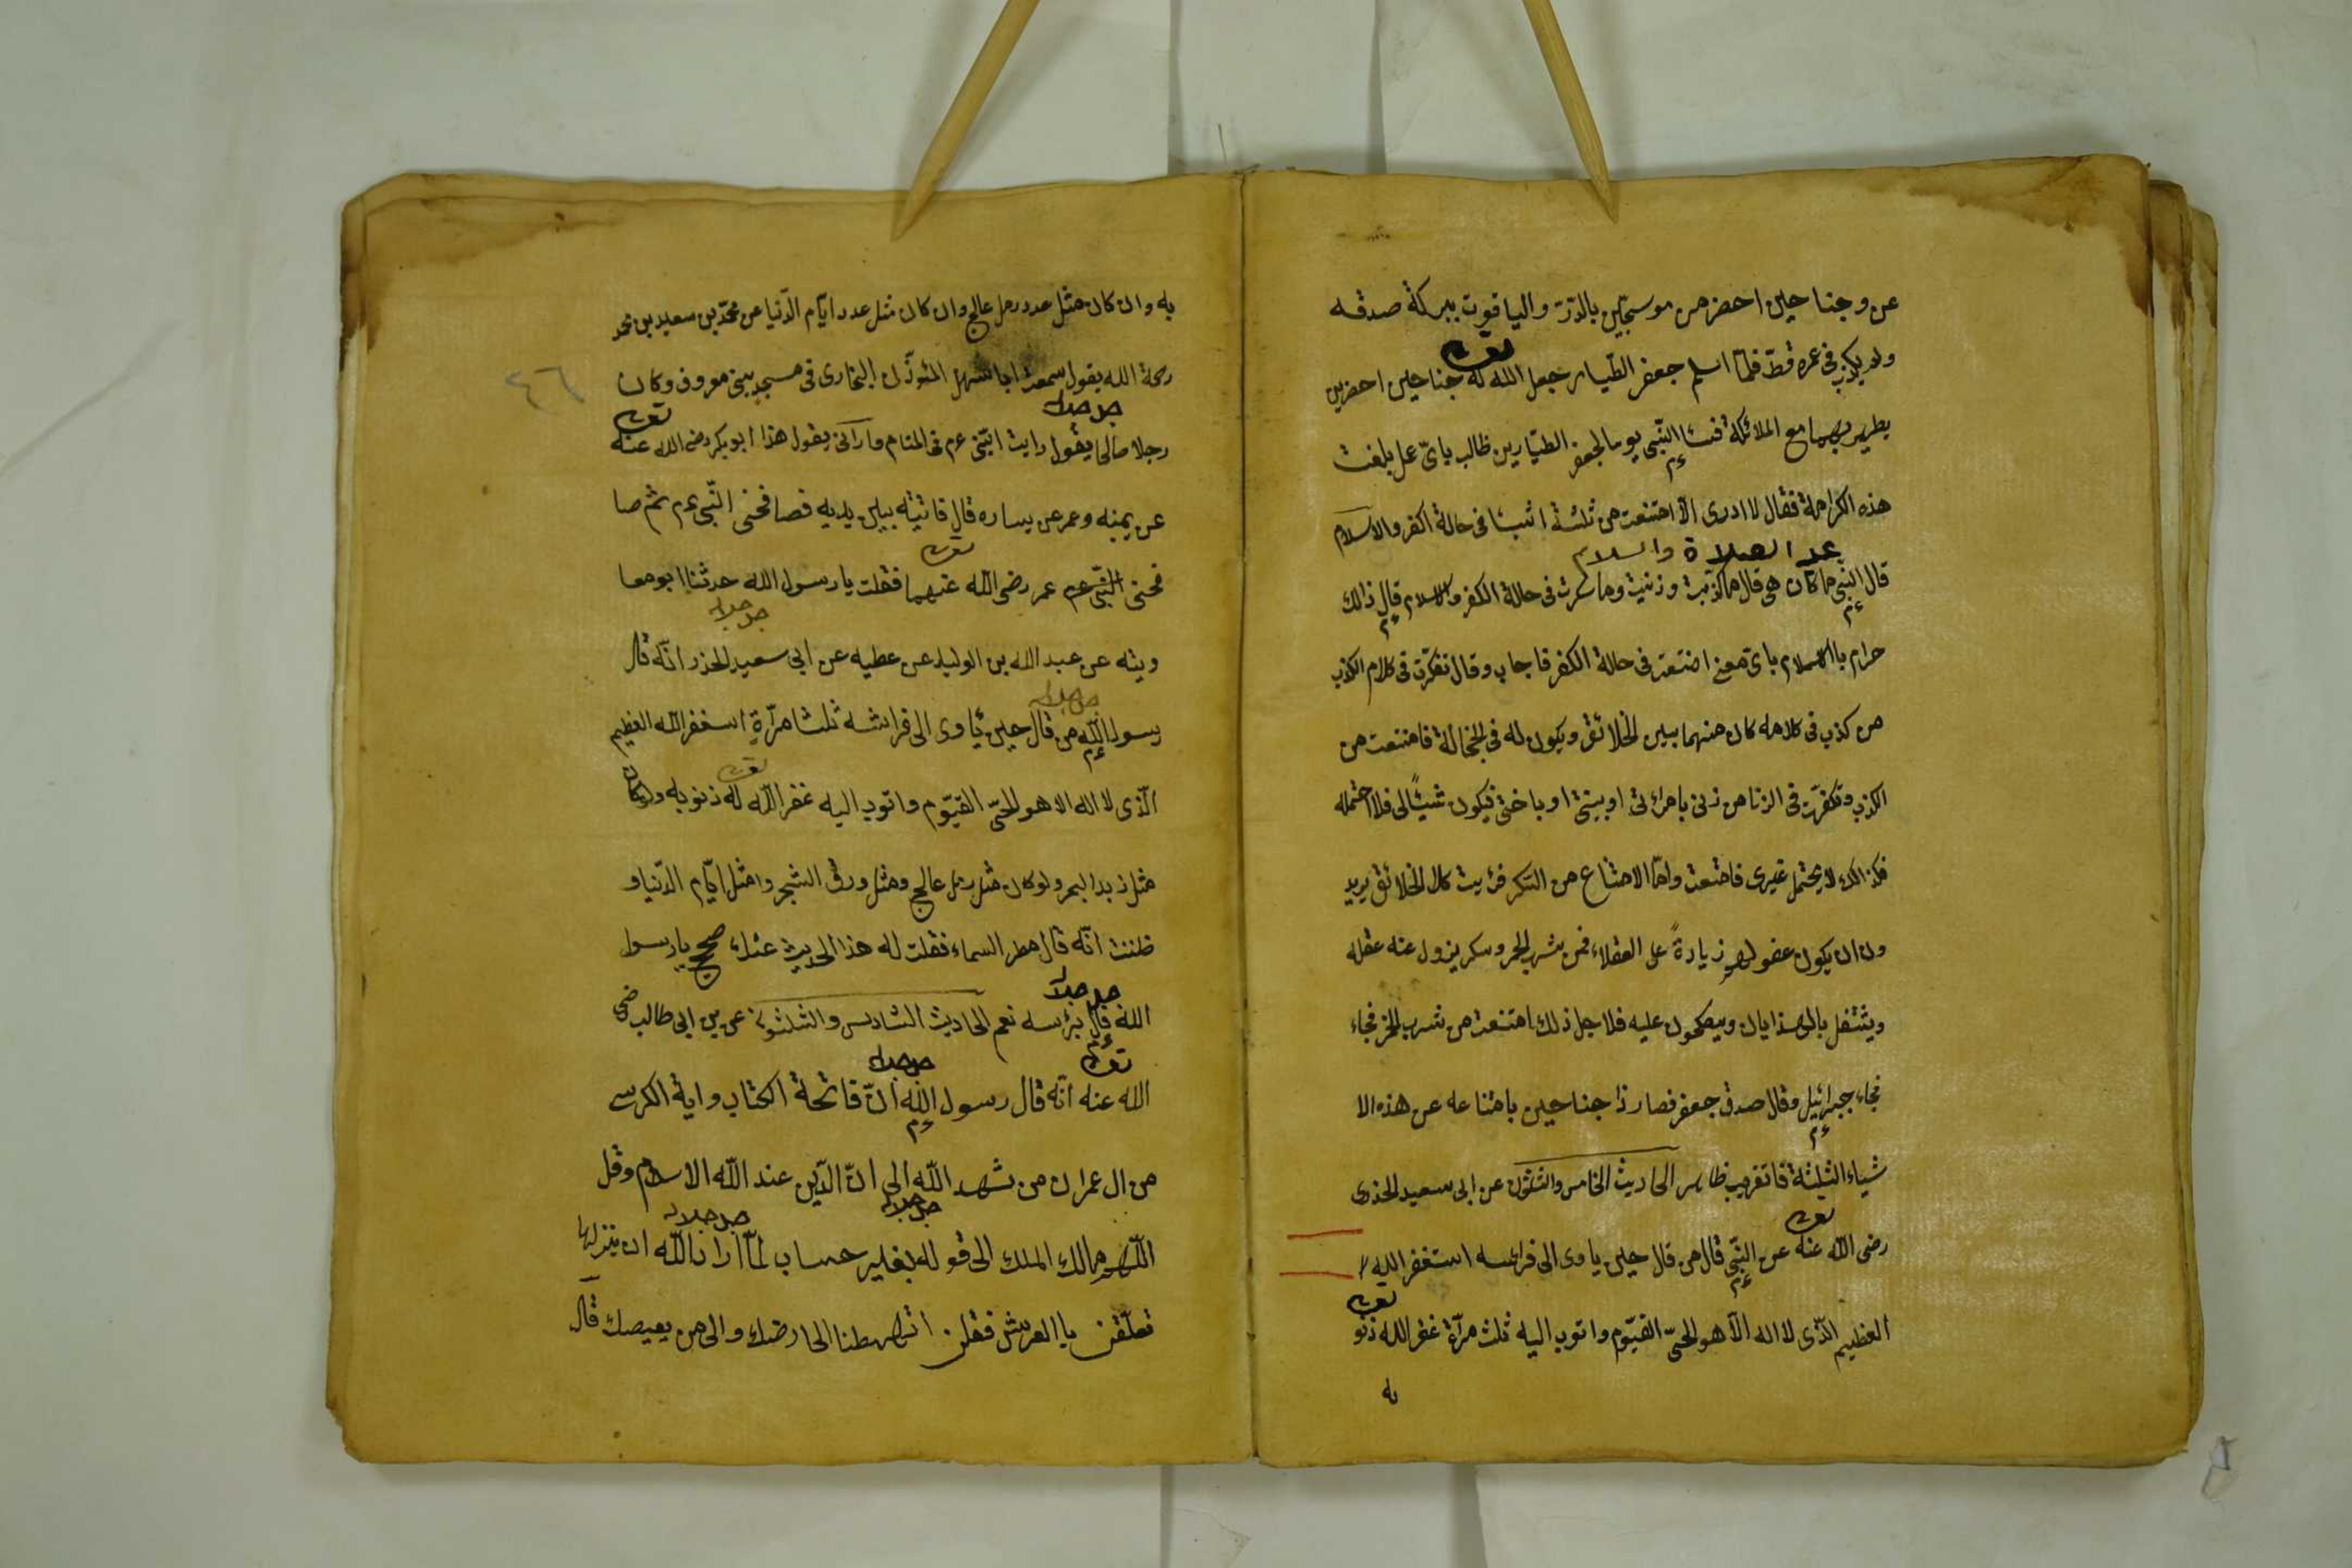 عن وجنا حين احضر من موسجين بالدرّ والياقوت ببركة صدقه
ولم يكذب فى عمره قطّ فلمّا اسلم جعفر الطّيار جعل الله له جناحين احضرين
تعالى
يطير بهما مع الملائكة النّبى يوما لجعفر الطيّار بن طالب باىّ عمل بلغت
هذه الكرامة فقال لا ادرى الّا امتنعت من ثلثة اشيئا فى حالة الكفر والاسلام
عليه الصلاة والسلام
قال النّبى ما كان هى قال ما كذبت وزنيت وما سكرت فى حالة الكفر والاسلام قال ذلك
حرام بالاسلام باىّ معنى امتنعت فى حالة الكفر فاجاب وقال تفكّرت فى كلام الكذب
من كذب فى كلامه كان منهما بين الخلائق ويكون له فى الخجالة فامتنعت من
الكذب وتفكرّت فى الزنا من زنى بامرأتى او ببنتى او باختى فيكون شيئًا لى فلا احتمله
فكذالك لا يحتمل غيرى فامتنعت وامّا الامتناع من السّكر فرئيت كل الخلائق يريد
ون ان يكون عضولهم زيادةً على العقلاء فمن يشرب الخمر وسكر يزول عنه عقله
ويشتغل بالهذايان ويضحكون عليه فلاجل ذلك امتنعت من شرب الخمر فجاء
فجاء جبرائيل وقال صدق جعفر فصار ذا جناحين بامتناعه عن هذه الا
شياء الثلثة الحاديث الخامس والثلثون عن ابى سعيد الخذرى
تعالى
رضى الله عنه عن النّبى قال من قال حين ياوى الى فراشه استغفر الله
تعالى
العظيم الّذى لا اله الّا هو الحىّ القيّوم واتوب اليه ثلث مرّة غفر الله ذنو
به
به وان كان مثل عدد رمل عالج وان كان مثل عدد ايّام الدّنيا عن محمّد بن سعيد بن محمد
٤٦
رحمة الله يقول سمعت ابا سهل المئوذّن البخارى فى مسجد بنى معروف وكان
جل جلاله
تعالى
رجلا صالحا يقول رايت النّبى عم فى المنام ومارآنى يقول هذا ابو بكر رضى الله عنه
عن يمينه وعمر عن يساره قال فاتيته بين يديه فصافحنى النّبى عم ثم صا
تعالى
فحنى النّبى عم عمر رضى الله عنهما فقلت يا رسول الله حدثنا ابو معا
جل جلاله
ويته عن عبد الله بن الوليد عن عطيه عن ابى سعيد الخذر انّه قال
جل جلاله
رسول الله من قال حين يأوى الى فراشه ثلثا مرّةٍ استغفر الله العظيم
تعالى
الّذى لا اله الا هو الحىّ القيّوم واتوب اليه غفر الله له ذنوبه ولو كان
مثل زبد البحر ولو كان مثل رمل عالج ومثل ورق الشجر وامثل ايّام الدّنيا و
ظننت انّه قال مطر السماء فقلت له هذا الحديث عنك صحيح يا رسول
جل جلاله
الله قال برئسه نعم الحاديث السّادس والثلثون عن بن ابى طالب رضى
تعالى
جل جلاله
الله عنه انّه قال رسول الله انّ فاتحة الكتاب واية الكرسى
من ال عمران من شهد الله الى انّ الدّين عند الله الاسلام وقل
جل جلاله
جل جلاله
اللّهم مالك الملك الى قوله بغير حساب لمّا اراد الله ان ينزلها
تعلّقن با العرش فقلن اتهبطنا الى ارضك والى من يعيصك قال